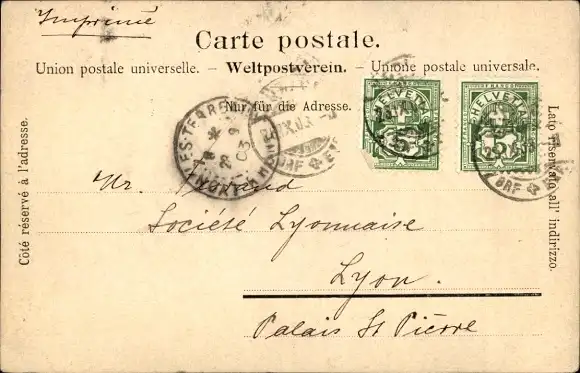 Imprimé
Carte postale.
Union postale universelle. – Weltpostverein. – Unione postale universale.
Nur für die Adresse.
HELVETIA
5
HELVETIA
5
Côté réservé à l'adresse.
Lato riservato all' indirizzo.
Mr.
Société Lyonnaise
Lyon.
Palais St Pierre